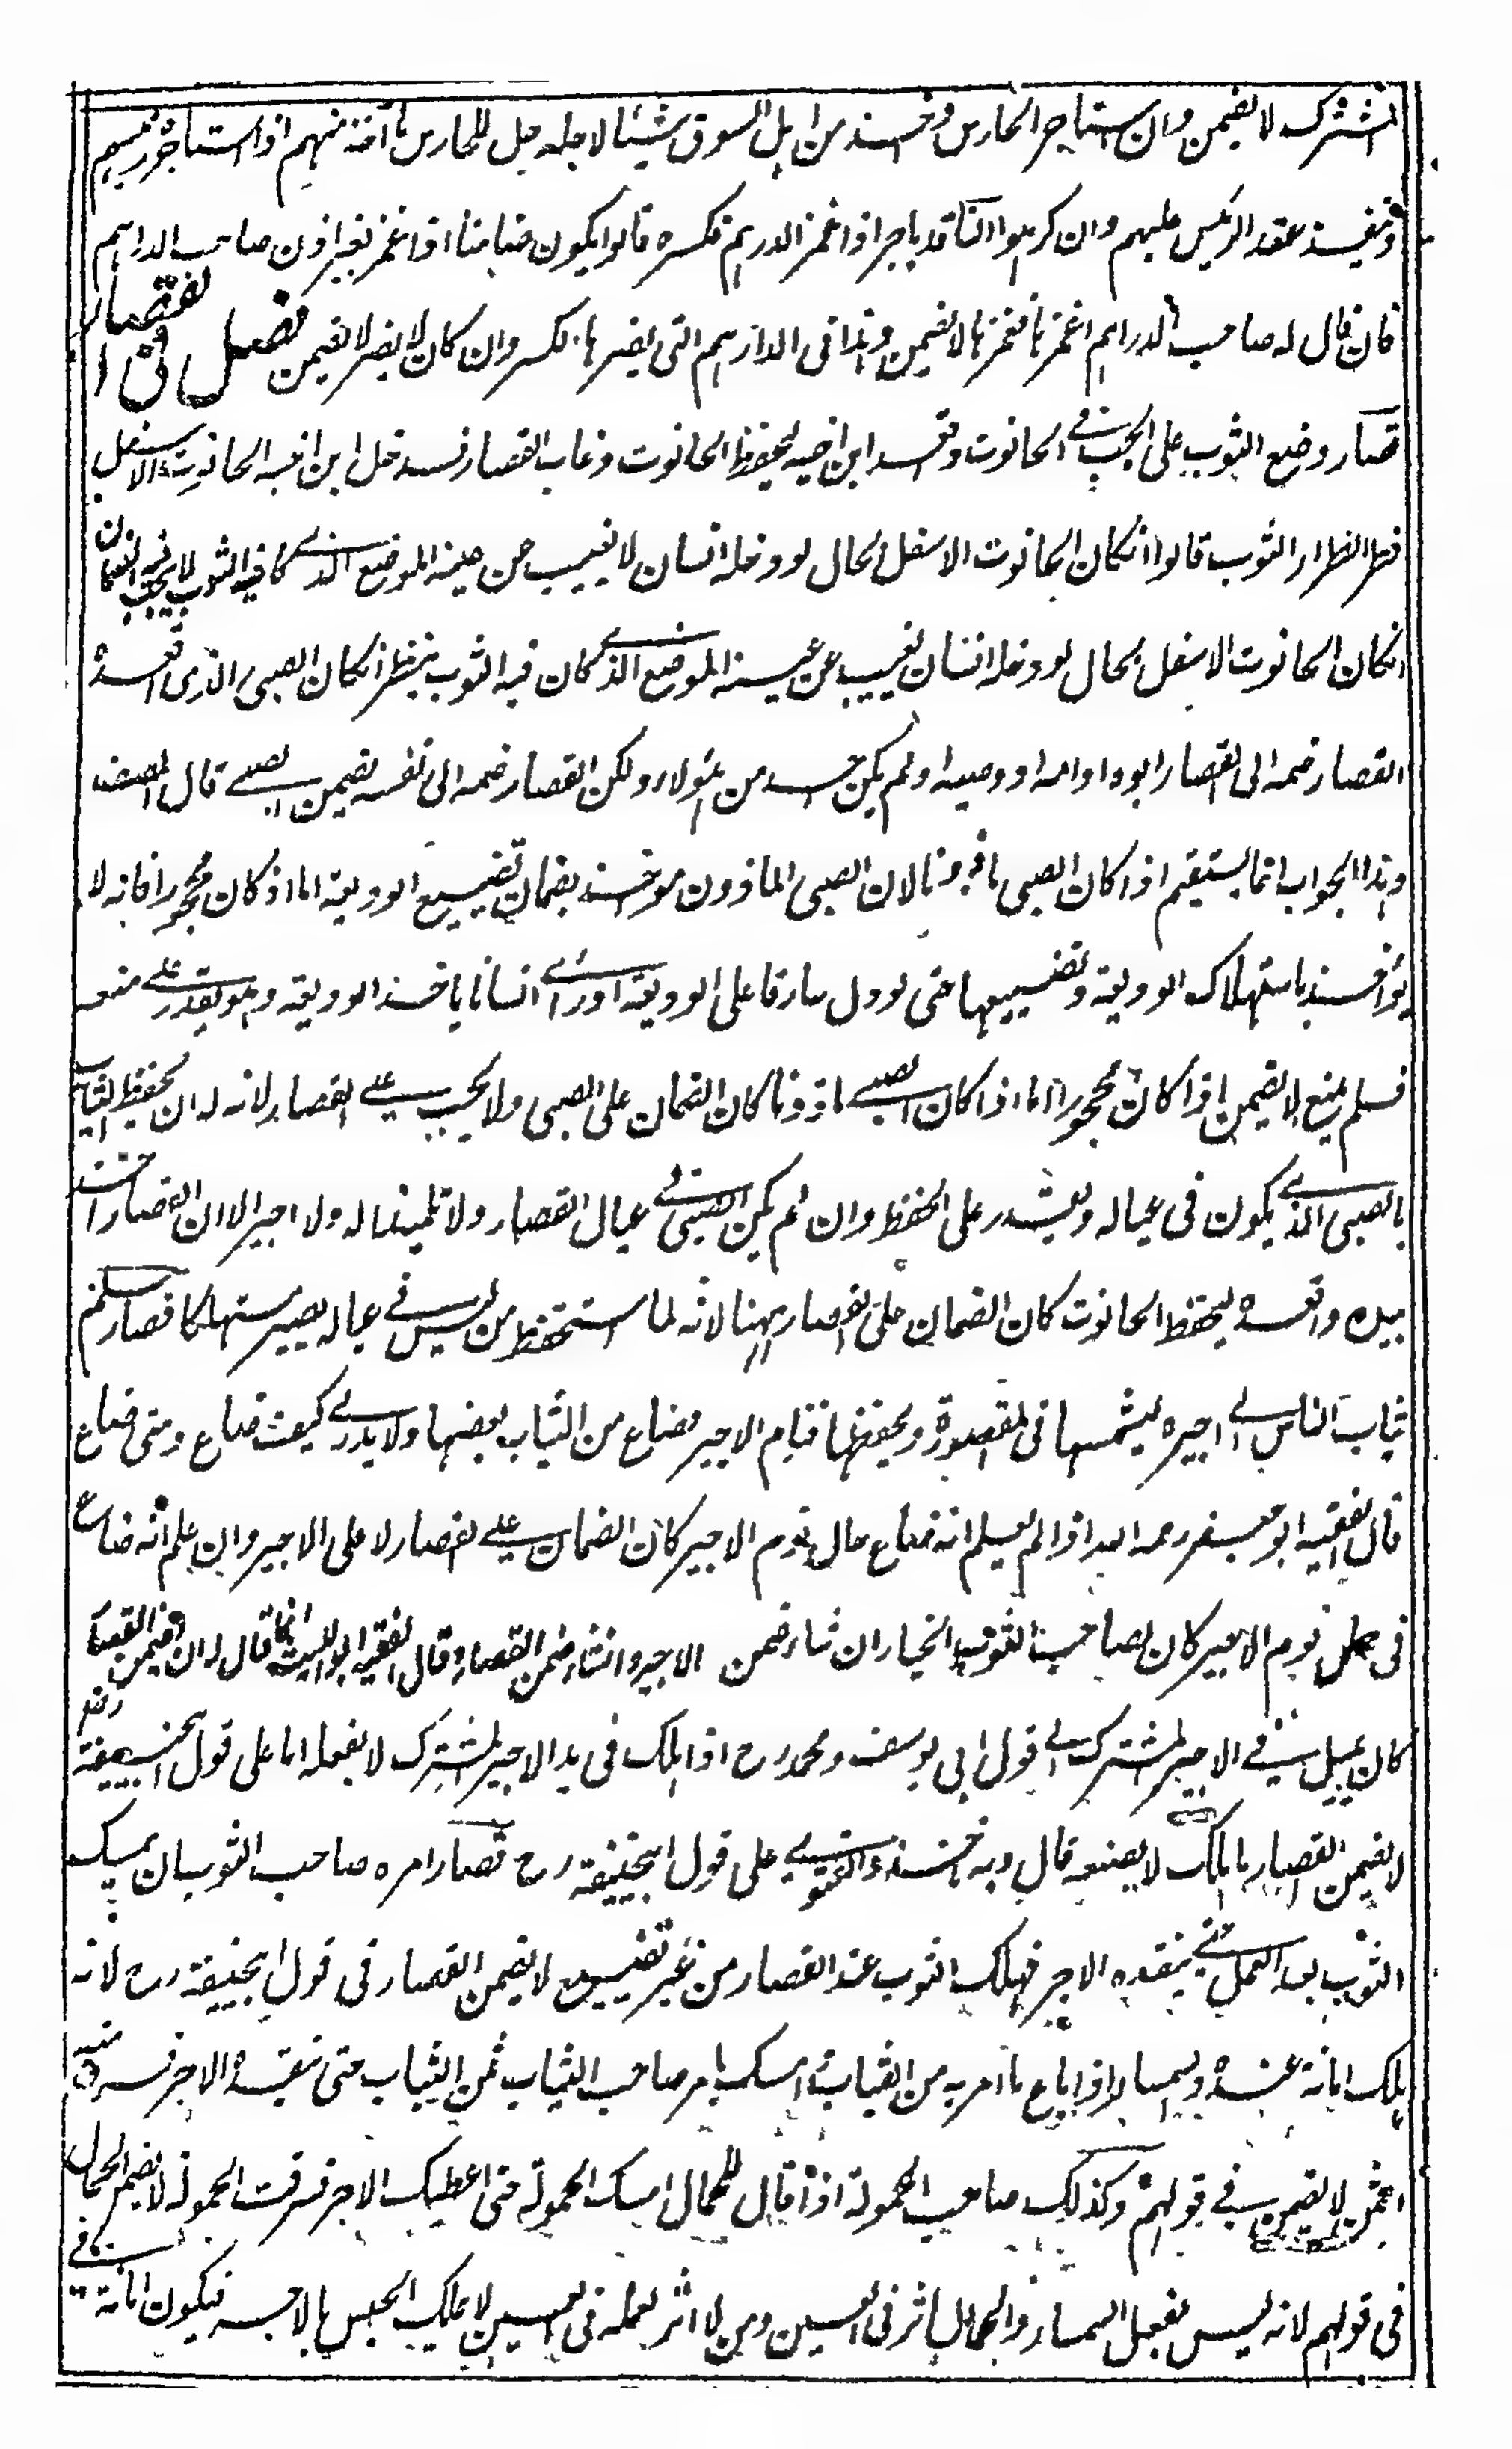 المشترك لا يضمن وان استاجر الحارس واخذ من اهل السوق شيئا لاجله حل للحارس ما اخذ منهم اذا استاجره رئيسهم
وينفذ عقد الرئيس عليهم وان كرهوا الناقد باجر اذا غمز الدرهم فكسره قالوا يكون ضامنا اذا غمز بغير اذن صاحب الدراهم
فان قال له صاحب الدراهم اغمزها فغمزها لا يضمن وهذا في الدراهم التي يضرها الكسر وان كان لا يضر لا يضمن فصل في القصار
قصار وضع الثوب على الحب في الحانوت واقعد ابن اخيه ليحفظ الحانوت وغاب القصار فدخل ابن اخيه الحانوت الاسفل
فطر الطرار الثوب قالوا انكان الحانوت الاسفل بحال لو دخله انسان لا يغيب عن عينه الموضع الذي كان فيه الثوب لا يجب الضمان
انكان الحانوت الاسفل بحال لو دخله انسان يغيب عن عينه الموضع الذي كان فيه الثوب ينظر انكان الصبي الذي اقعده
القصار ضمه الى القصار ابوه او امه او وصيه او لم يكن احد من هؤلاء ولكن القصار ضمه الى نفسه يضمن الصبي قال المصنف
وهذا الجواب انما يستقيم اذا كان الصبي ماذونا لان الصبي الماذون مؤاخذ بضمان تضييع الوديعة اما اذا كان محجورا فانه لا
يؤاخذ باستهلاك الوديعة وتضييعها حتى لو دل سارقا على الوديعة او رأى انسانا ياخذ الوديعة وهو يقدر على منعه
فلم يمنع لا يضمن اذا كان محجورا اما اذا كان الصبي ماذونا كان الضمان على الصبي ولا يجب على القصار لانه له ان يحفظ الثياب
بالصبي الذي يكون في عياله ويقدر على الحفظ وان لم يكن الصبي في عيال القصار ولا تلميذا له ولا اجيرا الا ان القصار اخذ
بيده واقعده ليحفظ الحانوت كان الضمان على القصار ههنا لانه لما استحفظ من ليس في عياله يصير مستهلكا قصار سلم
ثياب الناس الى اجيره ليشمسها في المقصورة ويحفظها فنام الاجير فضاع من الثياب بعضها ولا يدرى كيف ضاع ومتى ضاع
قال الفقيه ابو جعفر رحمه الله اذا لم يعلم انه ضاع حال نوم الاجير كان الضمان على القصار لا على الاجير وان علم انه ضاع
في حال نوم الاجير كان لصاحب الثوب الخيار ان شاء ضمن الاجير وان شاء ضمن القصار وقال الفقيه ابو الليث انما قال له ان يضمن القصار
كان يميل في الاجير المشترك الى قول ابي يوسف ومحمد رح اذا هلك في يد الاجير المشترك لا بفعله اما على قول ابيحنيفة رضي
لا يضمن القصار ما هلك لا بصنعه قال وبه ناخذ والفتوى على قول ابيحنيفة رح قصار امره صاحب الثوب ان يمسك
الثوب بعد العمل حتى ينقده الاجر فهلك الثوب عند القصار من غير تضييع لا يضمن القصار في قول ابيحنيفة رح لانه
هلك امانة عنده والسمسار اذا باع ما امر به من الثياب وامسك بامر صاحب الثياب ثمن الثياب حتى ينقده الاجر فسرق منه
الثمن لا يضمن في قولهم وكذلك صاحب الحمولة اذا قال للحمال امسك الحمولة حتى اعطيك الاجر فسرقت الحمولة لا يضمن الحمال
في قولهم لانه ليس لفعل السمسار والحمال اثر في العين ومن لا اثر لعمله في العين لا يملك الحبس بالاجر فيكون امانة في